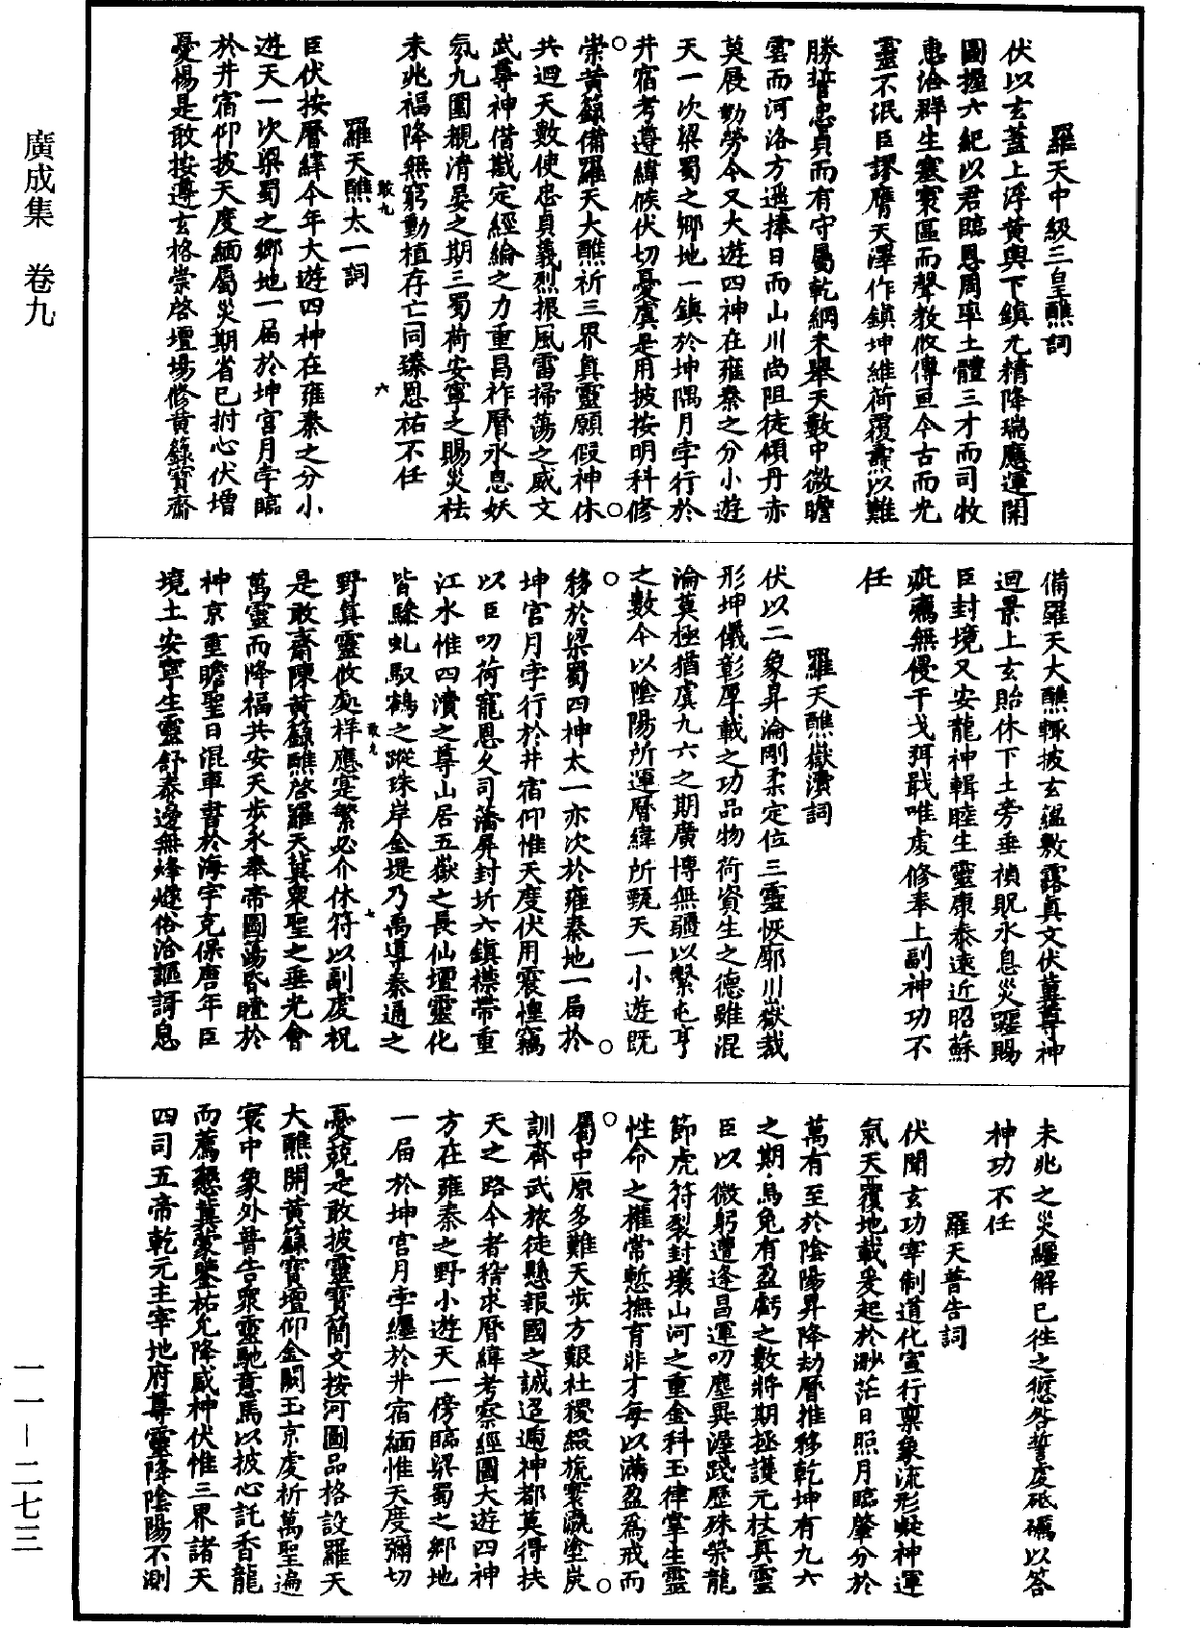 廣成集　卷九
羅天中級三皇醮詞
伏以玄蓋上浮黃輿下鎮九精降瑞應運開
圖握六紀以君臨恩周率土體三才而司牧
惠洽群生塞寰區而聲教攸傳亘今古而光
靈不泯臣謬膺天澤作鎮坤維荷覆燾以難
勝誓忠貞而有守屬乾綱未舉天數中微瞻
雲而河洛方遥捧日而山川尚阻徒傾丹赤
莫展勤勞今又大遊四神在雍秦之分小遊
天一次梁蜀之鄉地一鎮於坤隅月孛行於
井宿考遵緯候伏切憂虞是用披按明科修
崇黃籙備羅天大醮祈三界真靈願假神休
共迴天數使忠貞義烈振風雷掃蕩之威文
武尊神借戡定經綸之力重昌祚曆永息妖
氛九圍覩清晏之期三蜀荷安寧之賜災祛
未兆福降無窮動植存亡同臻恩祐不任
羅天醮太一詞
臣伏按曆緯今年大遊四神在雍秦之分小
遊天一次梁蜀之鄉地一届於坤宮月孛臨
於井宿仰披天度緬屬災期省已拊心伏增
憂惕是敢按遵玄格崇啓壇場修黃籙寶齋
備羅天大醮輒披玄蘊敷露真文伏冀尊神
迴景上玄貽休下土旁垂禎貺永息災躔賜
臣封境乂安龍神輯睦生靈康泰遠近昭蘇
疵癘無侵干戈弭戢唯虔修奉上副神功不
任
羅天醮嶽瀆詞
伏以二象昇淪剛柔定位三靈恢廓川嶽裁
形坤儀彰厚載之功品物荷資生之德雖混
淪莫極猶虞九六之期廣博無疆以繫屯亨
之數今以陰陽所運曆緯所甄天一小遊既
移於梁蜀四神太一亦次於雍秦地一届於
坤宮月孛行於井宿仰惟天度伏用震惶竊
以臣叨荷寵恩久司藩屏封圻六鎮襟帶重
江水惟四瀆之尊山居五嶽之長仙壇靈化
皆驂虬馭鶴之蹤珠岸金堤乃禹導秦通之
野真靈攸處祥應寔繁必介休符以副虔祝
是敢齋陳黃籙醮啓羅天冀衆聖之垂光會
萬靈而降福共安天步永奉帝圖蕩昏曀於
神京重瞻聖日混車書於海宇克保唐年臣
境土安寧生靈舒泰邊無烽燧俗洽謳謌息
未兆之災纏解已往之愆咎誓虔砥礪以答
神功不任
羅天普告詞
伏聞玄功宰制道化宣行稟象流形凝神運
氣天覆地載爰起於渺茫日照月臨肇分於
萬有至於陰陽昇降劫曆推移乾坤有九六
之期烏兔有盈虧之數將期拯護元杖真靈
臣以微躬遭逢昌運叨塵異渥踐歷殊榮龍
節虎符裂封壤山河之重金科玉律掌生靈
性命之權常慙撫育非才每以滿盈為戒而
屬中原多難天步方艱社稷綴旒寰瀛塗炭
訓齊武旅徒懸報國之誠迢遞神都莫得扶
天之路今者稽求曆緯考察經圖大遊四神
方在雍秦之野小遊天一傍臨梁蜀之鄉地
一届於坤宮月孛纏於井宿緬惟天度彌切
憂兢是敢披靈寶簡文按河圖品格設羅天
大醮開黃籙寶壇仰金闕玉京虔祈萬聖遍
寰中象外普告衆靈馳意馬以披心託香龍
而薦懇冀蒙鑒祐允降威神伏惟三界諸天
四司五帝乾元主宰地府尊靈降陰陽不測
一一－二七三